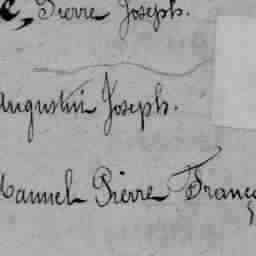 e, Pierre Joseph.
Augustin Joseph.
Pierre Franç